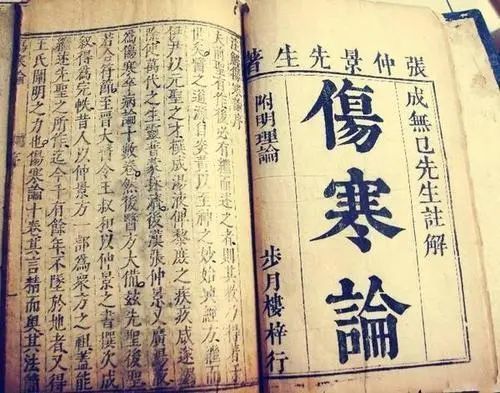 張仲景先生著
成無已先生註解
傷寒論
附明理論
步月樓梓行
註解傷寒論序
夫前聖有作後必有繼而述之者則其教乃得著於
世矣醫之道源自炎黃以至神之妙始興經方繼而
伊尹以元聖之才撰成湯液俾黎庶之疾疢咸遂蠲
除使萬代之生靈普蒙拯濟後漢張仲景又廣湯液
為傷寒卒病論十數卷然後醫方大備茲先聖後聖
若合符節至晉太醫令王叔和以仲景之書撰次成
敘得為完帙昔人以仲景方一部為眾方之祖蓋能
繼述先聖之所作迄今千有餘年不墜於地者又得
王氏闡明之力也傷寒論十卷其言精而奧其法簡
傷寒論